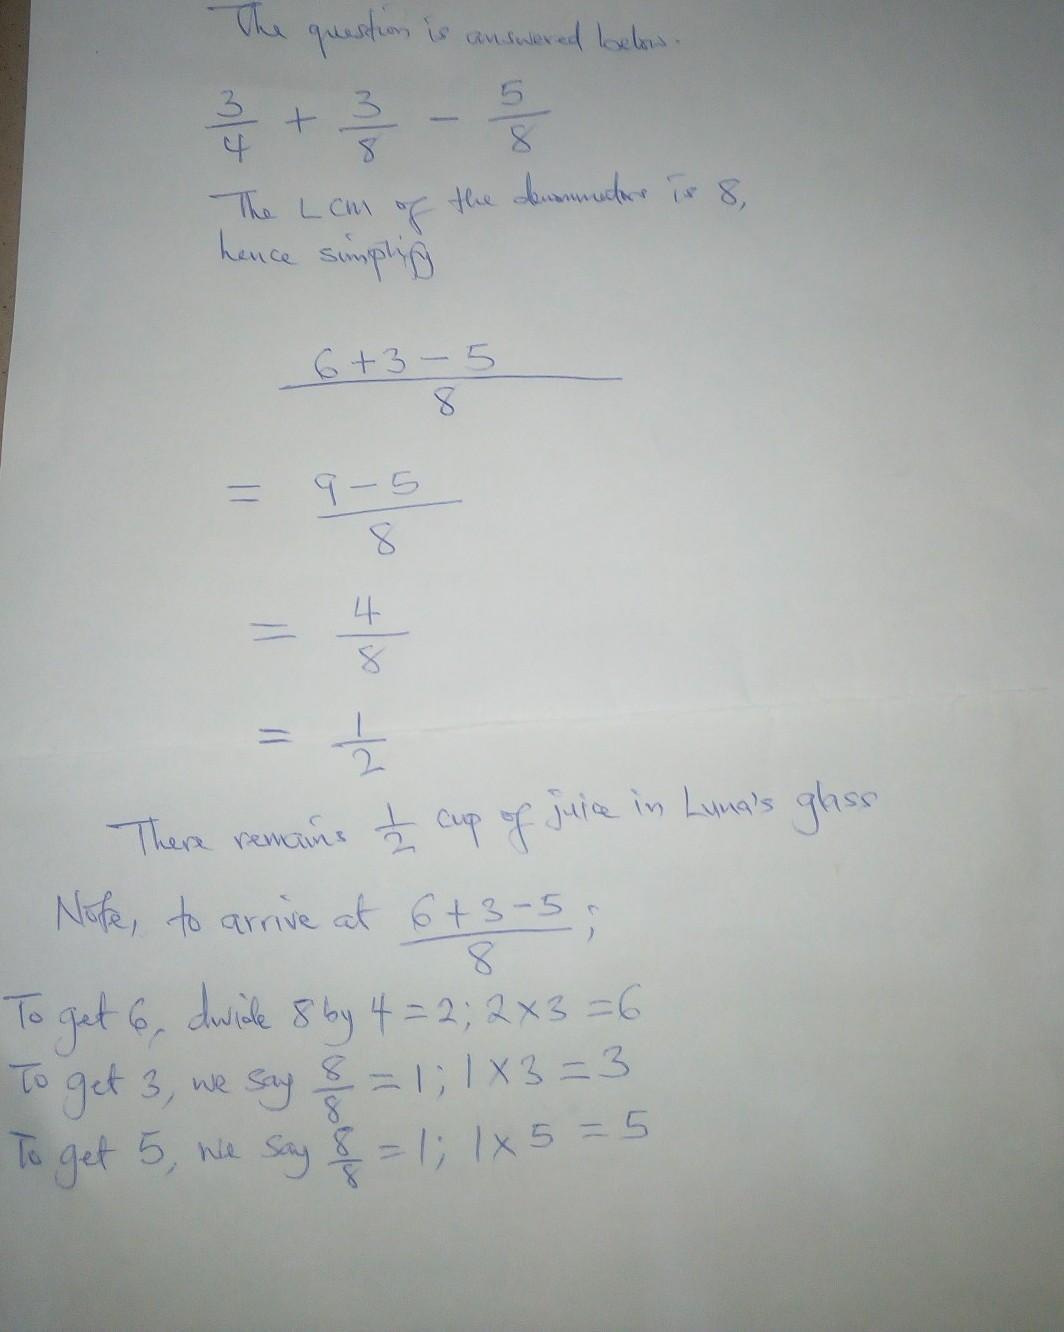 The question is answered below.
3/4 + 3/8 - 5/8
The LCM of the denominators is 8,
hence simplify
6+3-5/8
= 9-5/8
= 4/8
= 1/2
There remains 1/2 cup of juice in Luna's glass
Note, to arrive at 6+3-5/8;
To get 6, divide 8 by 4 = 2; 2×3 = 6
To get 3, we say 8/8 = 1; 1×3 = 3
To get 5, we say 8/8 = 1; 1×5 = 5